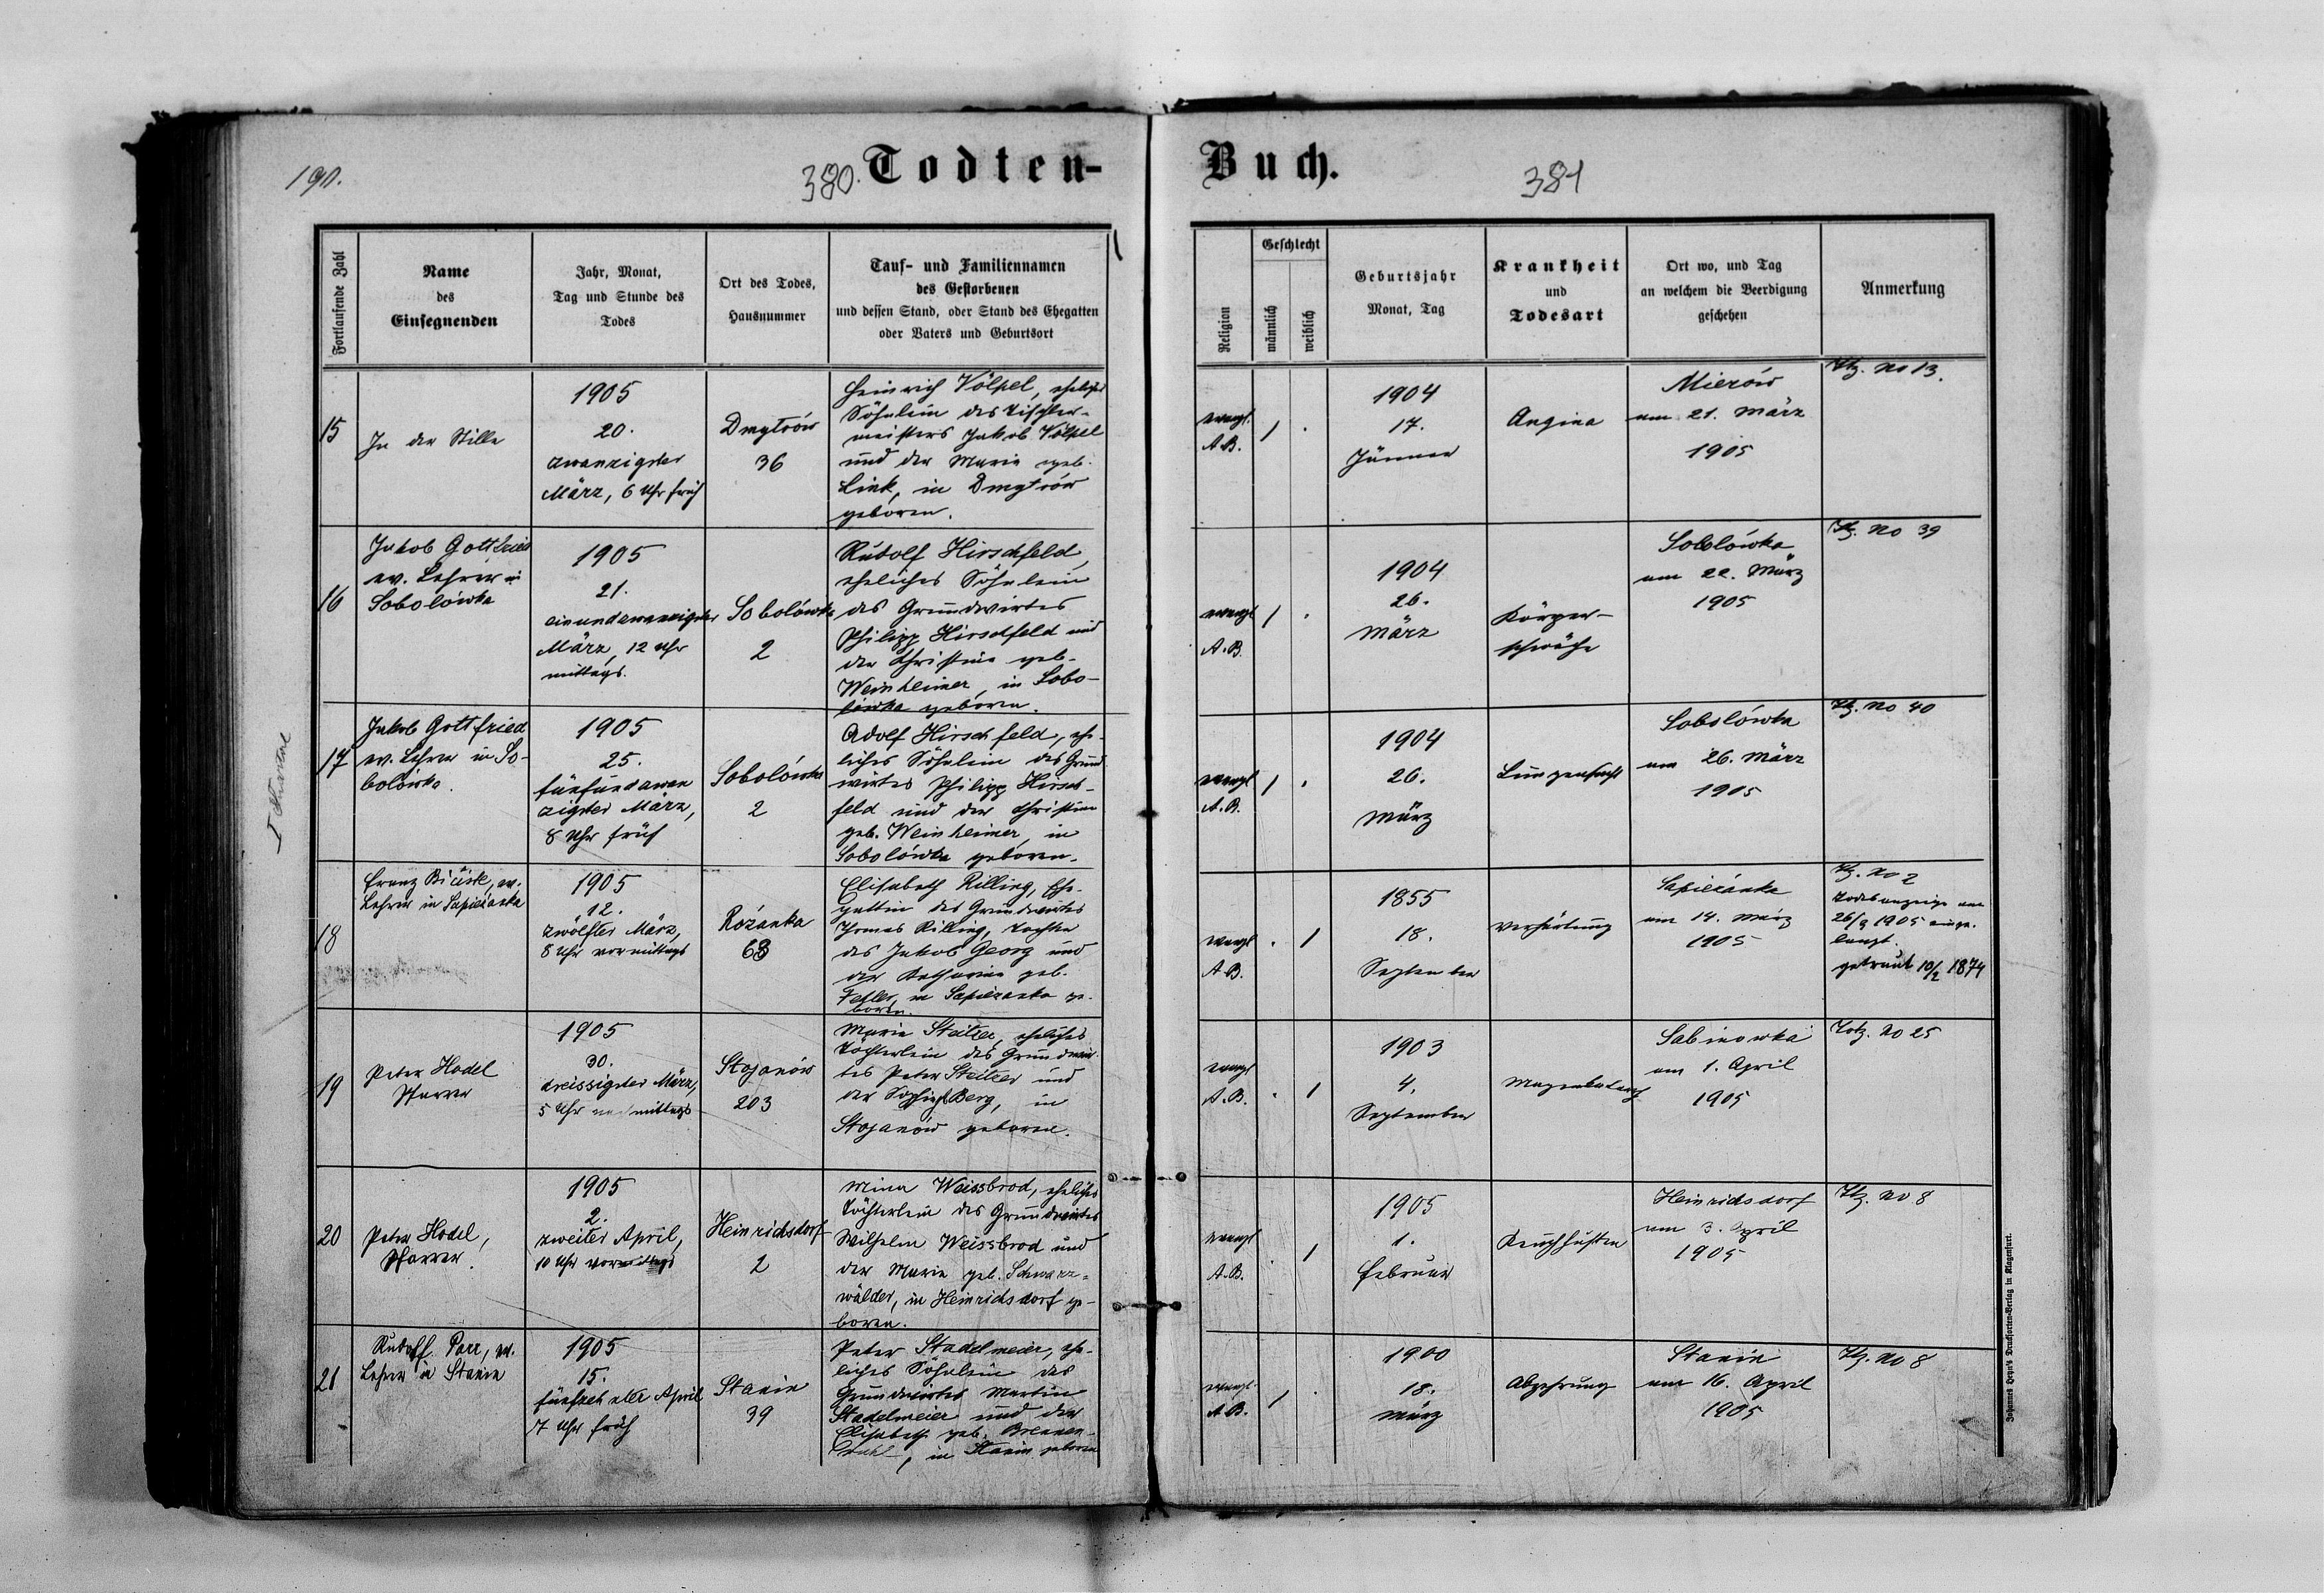 190.
380.
Todten-
Buch.
381
Fortlaufende Zahl
Name
des
Einsegnenden
Jahr, Monat,
Tag und Stunde des
Todes
Ort des Todes,
Hausnummer
Tauf- und Familiennamen
des Gestorbenen
und dessen Stand, oder Stand des Ehegatten
oder Vaters und Geburtsort
Religion
Geschlecht
männlich
weiblich
Geburtsjahr
Monat, Tag
Krankheit
und
Todesart
Ort wo, und Tag
an welchem die Beerdigung
geschehen
Anmerkung
15
In der Stille
1905
20.
zwanzigster
März, 6 Uhr früh
Dmytrów
36
Heinrich Völpel, eheliches
Söhnlein des Tischler-
meisters Jakob Völpel
und der Maria geb.
Link, in Dmytrów
geboren.
evangl.
A.B.
1 .
1904
17.
Jänner
Angina
Mierów
am 21. März
1905
No 13.
16
Jakob Gottfried
ev. Lehrer in
Sobolówka
1905
21.
einundzwanzigster
März, 12 Uhr
mittags.
Sobolówka
2
Rudolf Hirschfeld,
eheliches Söhnlein
des Grundwirtes
Philipp Hirschfeld und
der Christine geb.
Weinheimer, in Sobo-
lówka geboren.
evangl
A.B.
1 .
1904
26.
März
Körper-
schwäche
Sobolówka
am 22. März
1905
No 39
17
Jakob Gottfried
ev. Lehrer in So-
bolówka.
1905
25.
fünfundzwan
zigster März,
8 Uhr früh
Sobolówka
2
Adolf Hirschfeld, ehe-
liches Söhnlein des Grund-
wirtes Philipp Hirsch-
feld und der Christine
geb. Weinheimer, in
Sobolówka geboren.
evangl
A.B.
1 .
1904
26.
März
Lungensucht
Sobolówka
am 26. März
1905
No 40
18
Franz ev.
Lehrer in Sapieżanka
1905
12.
zwölfter März,
8 Uhr vormittags
Rożanka
68
Elisabeth Rilling, Ehe-
gattin des Grundwirtes
Thomas Rilling, Tochter
des Jakob Georg und
der Katharina geb.
in Sapieżanka ge-
boren.
evangl
A.B.
. 1
1855
18.
September
Verhärtung
Sapieżanka
am 14. März
1905
No 2
Todesanzeige am
26/3 1905 einge-
langt.
getraut 10/2 1874
19
Peter Hodel
Pfarrer
1905
30.
dreissigster März,
5 Uhr nachmittags
Stojanów
203
Maria Steitzer, eheliches
Töchterlein des Grundwir-
tes Peter Steitzer und
der Sophie Berg, in
Stojanów geboren.
evangl
A.B.
. 1
1903
4.
September
Magenkatarrh
Sabinowka
am 1. April
1905
No 25
20
Peter Hodel,
Pfarrer.
1905
2.
zweiter April,
10 Uhr vormittags
Heinrichsdorf
2
Mina Weissbrod, eheliches
Töchterlein des Grundwirtes
Wilhelm Weissbrod und
der Maria geb. Schwarz-
wälder, in Heinrichsdorf ge-
boren.
evangl
A.B.
. 1
1905
1.
Februar
Keuchhusten
Heinrichsdorf
am 3. April
1905
No 8
21
Rudolf Parr, ev.
Lehrer in Stanin
1905
15.
fünfzehnter April
7 Uhr früh
Stanin
39
Peter Stadelmeier, ehe-
liches Söhnlein des
Grundwirtes Martin
Stadelmeier und der
Elisabeth geb. Brennen-
stuhl, in Stanin geboren
evangl.
A.B.
1 .
1900
18.
März
Abzehrung
Stanin
am 16. April
1905
No 8
Johannes Heyn's Drucksorten-Verlag in Klagenfurt.